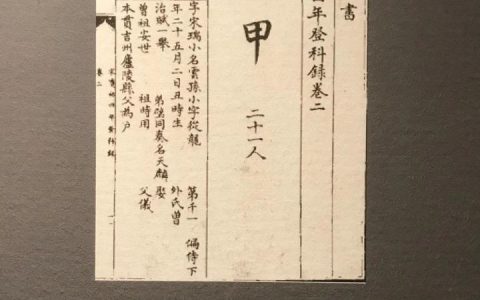 書
年登科録卷二
甲 二十一人
字宋瑞小名雲孫小字從龍 第千一 偏侍下
年二十五月二日丑時生 外氏曾
治賦一舉 弟璧同奏名天麟 娶
曾祖安世 祖時用 父儀
本貫吉州廬陵縣父為户
卷二